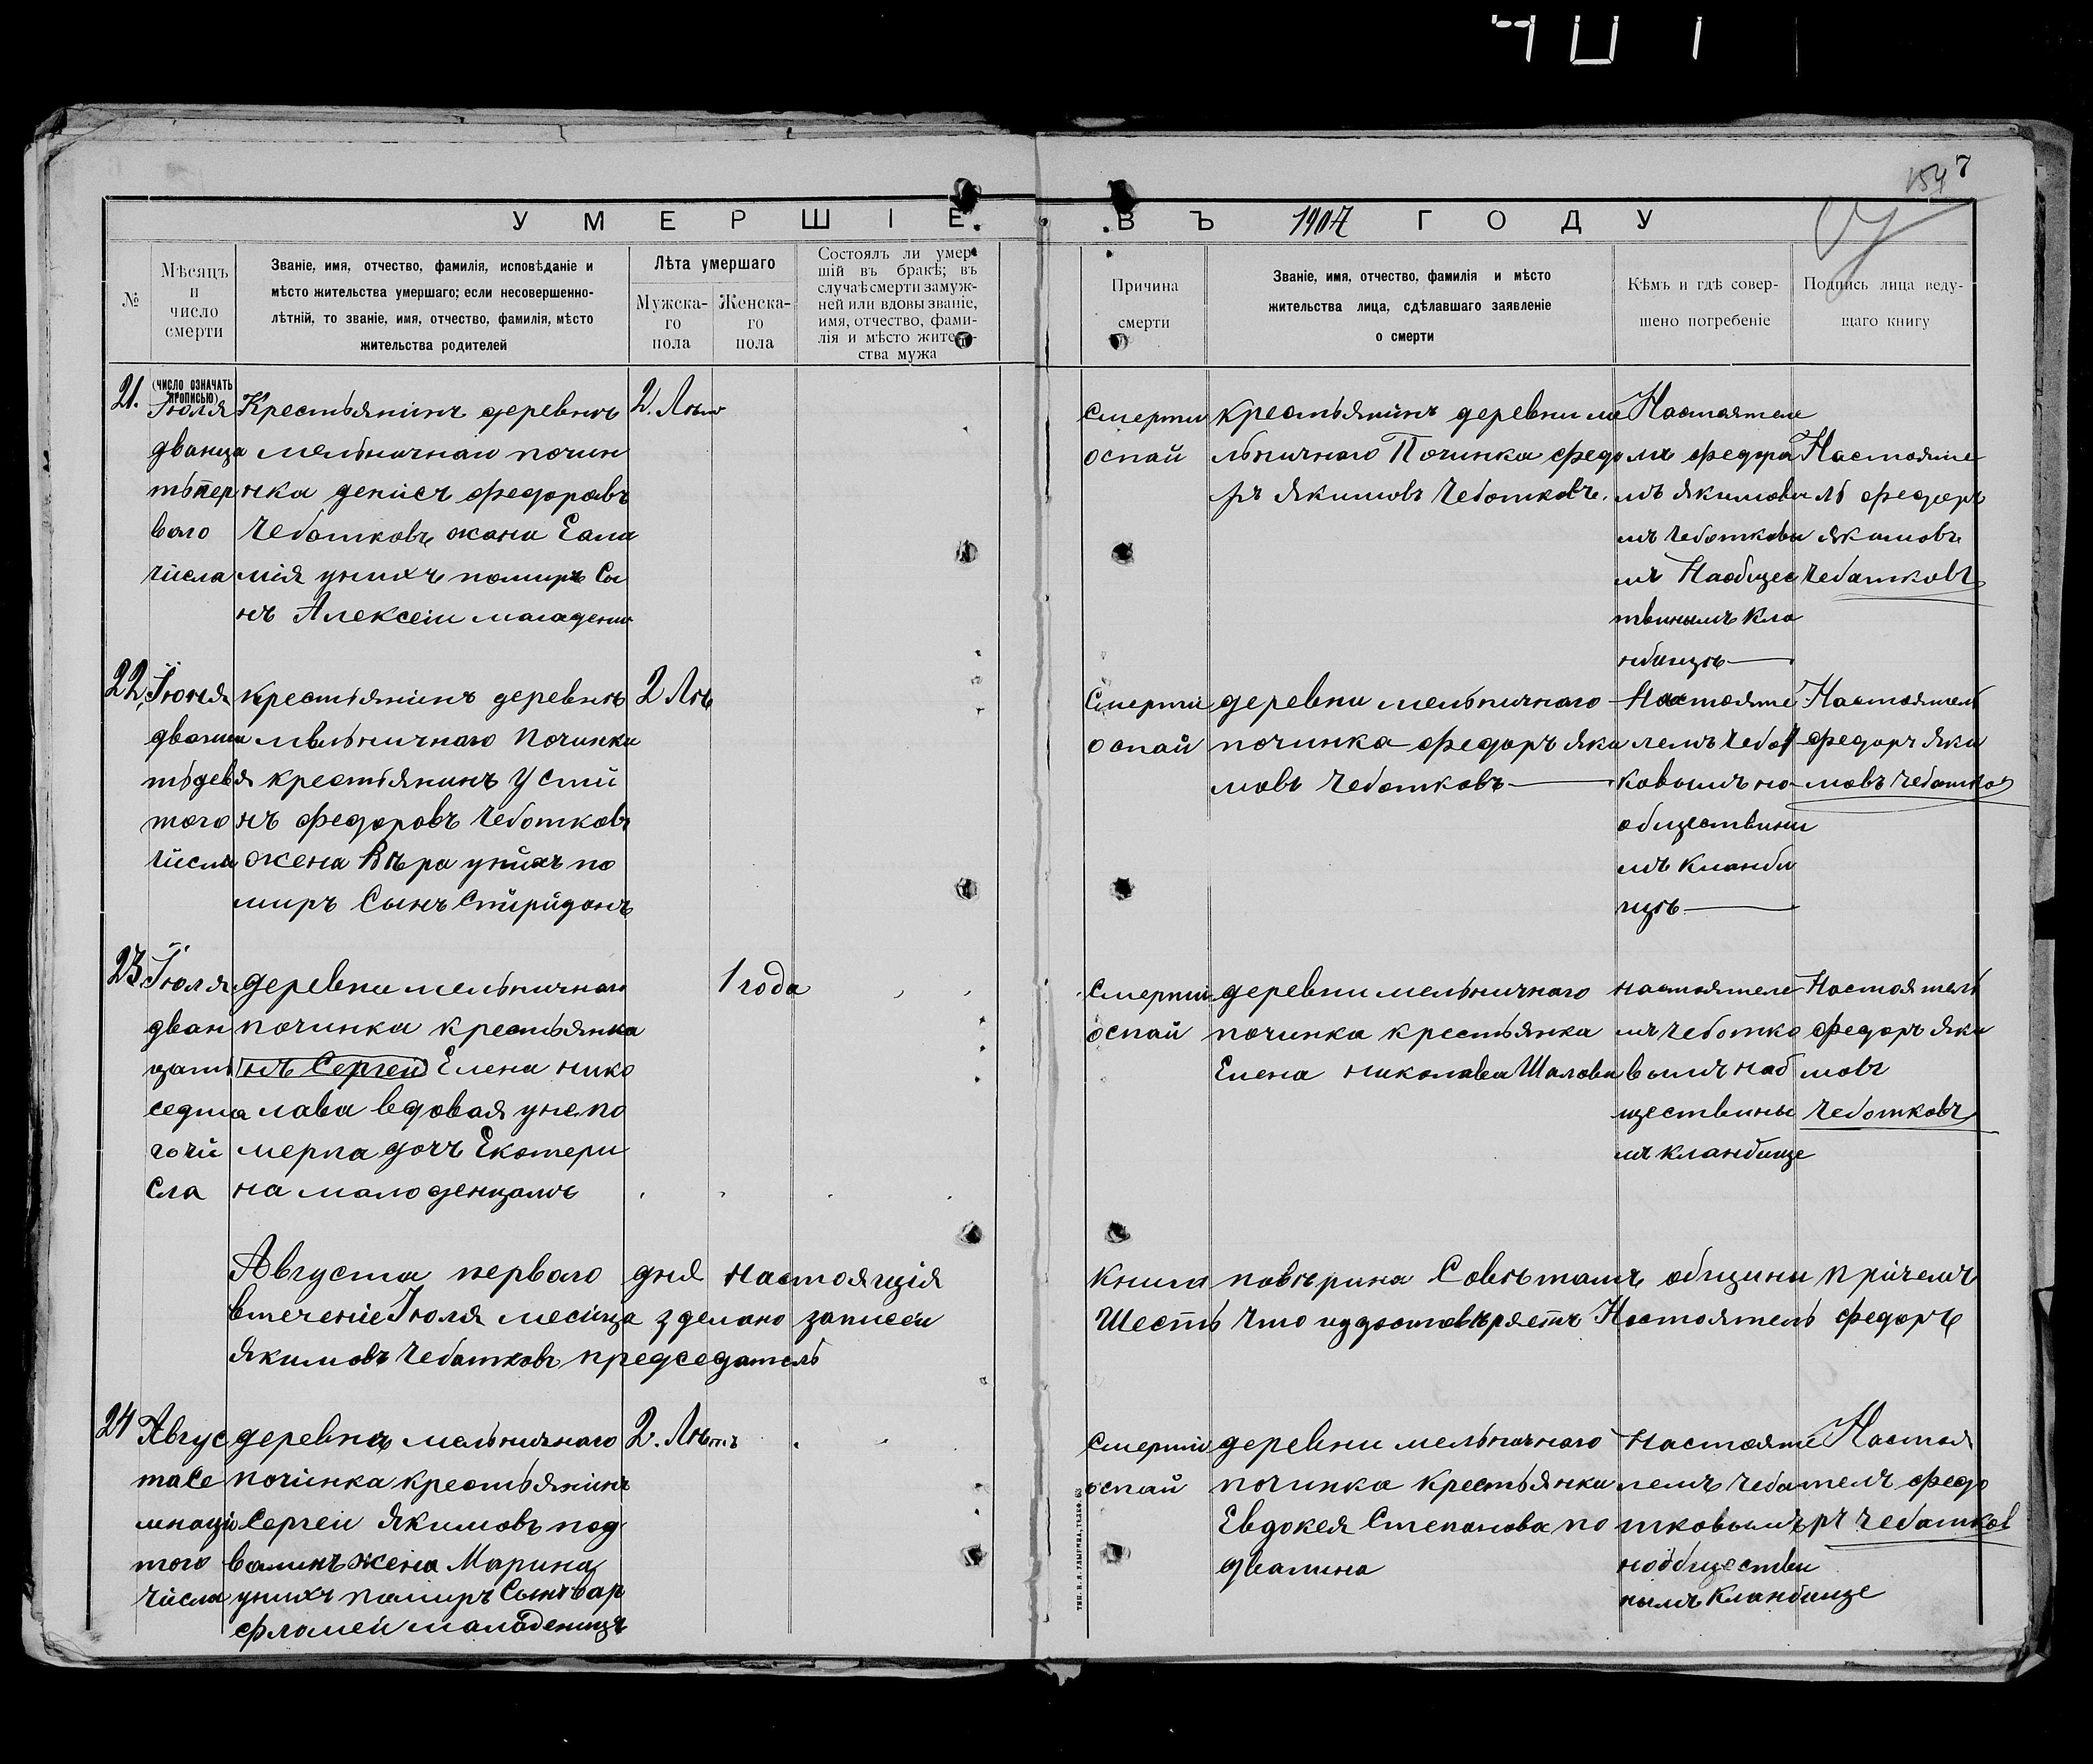 154 7
УМЕРШІЕ ВЪ 1907 ГОДУ
№
Мѣсяцъ
и
число
смерти
Званіе, имя, отчество, фамилія, исповѣданіе и
мѣсто жительства умершаго; если несовершенно-
лѣтній, то званіе, имя, отчество, фамилія, мѣсто
жительства родителей
Лѣта умершаго
Мужска-
го
пола
Женска-
го
пола
Состоялъ ли умер-
шій въ бракѣ; въ
случаѣ смерти замуж-
ней или вдовы званіе,
имя, отчество, фами-
лія и мѣсто житель-
ства мужа
Причина
смерти
Званіе, имя, отчество, фамилія и мѣсто
жительства лица, сдѣлавшаго заявленіе
о смерти
Кѣмъ и гдѣ совер-
шено погребеніе
Подпись лица веду-
щаго книгу
(число означать
прописью)
21.
Іюля
дванца
тьпер
ваго
числа
Крестьянинъ деревнѣ
мельничнаго почин
нка денисъ федоравъ
Чеботковъ жана Еала
мія унихъ помиръ Сы
нъ Алексеіи маладениц
2. Лѣт
Смерти
оспай
крестьянинъ деревни ме
льничнаго Починка федо
ръ якимовъ Чеботковъ.
Настоятеле
мъ федора
мъ якимовы
мъ Чеботковы
мъ Наобщес
твинымъ Кла
нбищѣ
Настояте
ль федоръ
якимовъ
Чебатковъ
22,
Іюня
дванца
тьдевя
того
числа
крестьянинъ деревнѣ
мѣльничнаго Починка
крестьянинъ Усти
нъ федоровъ Чеботковъ
жена Вѣра унихъ по
миръ Сынъ Спиридонъ
2 Лѣ
Смерти
оспай
деревни мельничнаго
починка федоръ яки
мовъ Чеботковъ
Настояте
лемъ Чебот
ковымъ но
обществины
мъ Кланби
щѣ
Настоятель
федоръ яки
мовъ Чебатков
23
Іюля
дван
цать
седма
гочи
сла
деревни мельничнаго
починка крестьянка
нъ Сергеи Елена нико
лава вдовая уне по
мерла дочъ Екатери
на малоденцамъ
1 года
Смерти
оспай
деревни мельничнаго
починка крестьянка
Елена николавеа Шалова
настоятеле
мъ Чеботко
вымъ наоб
ществины
мъ кланбище
Настоятель
федоръ яки
мовъ
Чеботковъ
Августа перваго дня настоящія Книги повѣрина Совѣтамъ общины причемъ
втеченіе Іюля месіица зделано записеи Шесть Что иудостовѣряетъ Настоятель федоръ
якимовъ Чебатковъ председатель
24
Авгус
таСе
мнацо
того
числа
деревнѣ мельничнаго
починка крестьянинъ
Сергеи якимовъ под
валинъ жена Марина
унихъ памиръ Сынъ вар
фламеи маладеницъ
2. Лѣтъ
Смерти
оспай
деревни мельничнаго
починка Крестьянка
Евдокея Степанова по
двалина
Настояте
лемъ чеба
тковымъ
нообществи
нымъ Кланбище
Настоя
телъ федо
ръ чебатков